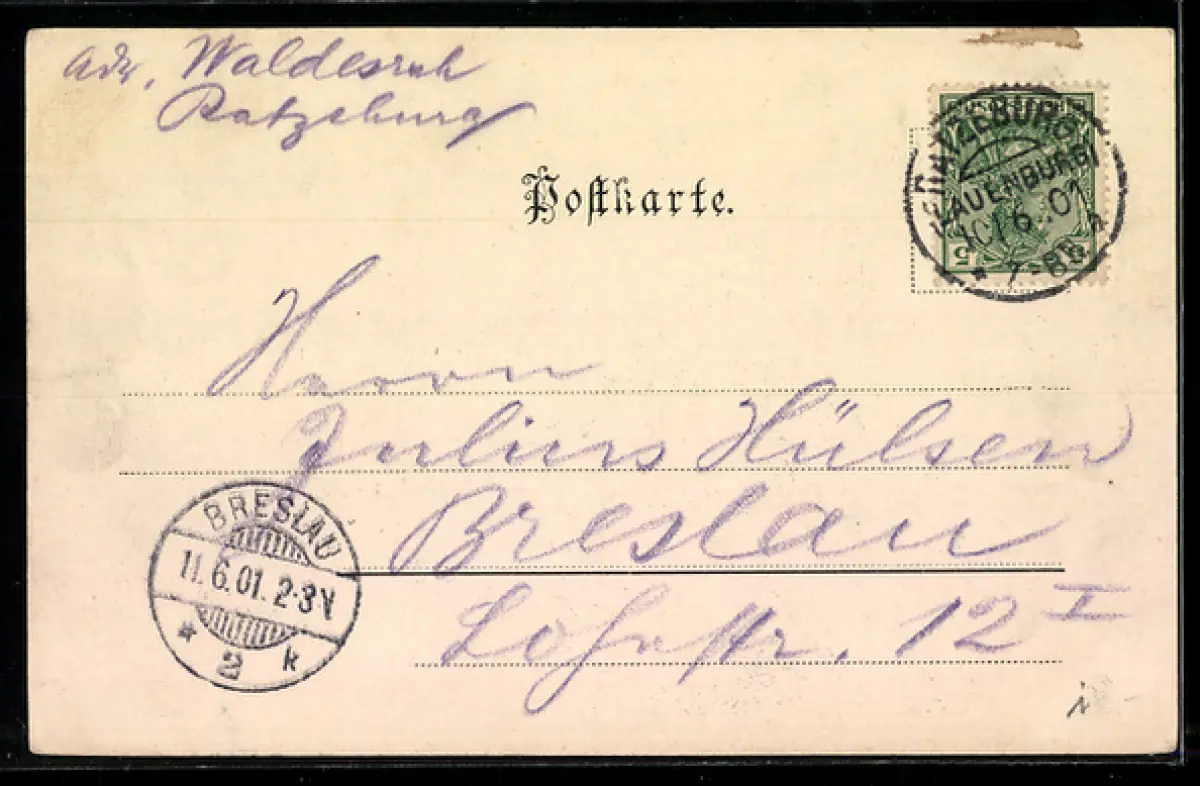 Adr. Waldesruh
Ratzeburg
Postkarte.
RATZEBURG
(LAUENBURG)
10.6.01
* 7-8 N
5
Herrn
Julius Hülsen
Breslau
Lohestr. 12 I
BRESLAU
11.6.01. 2-3 V
* 2 k